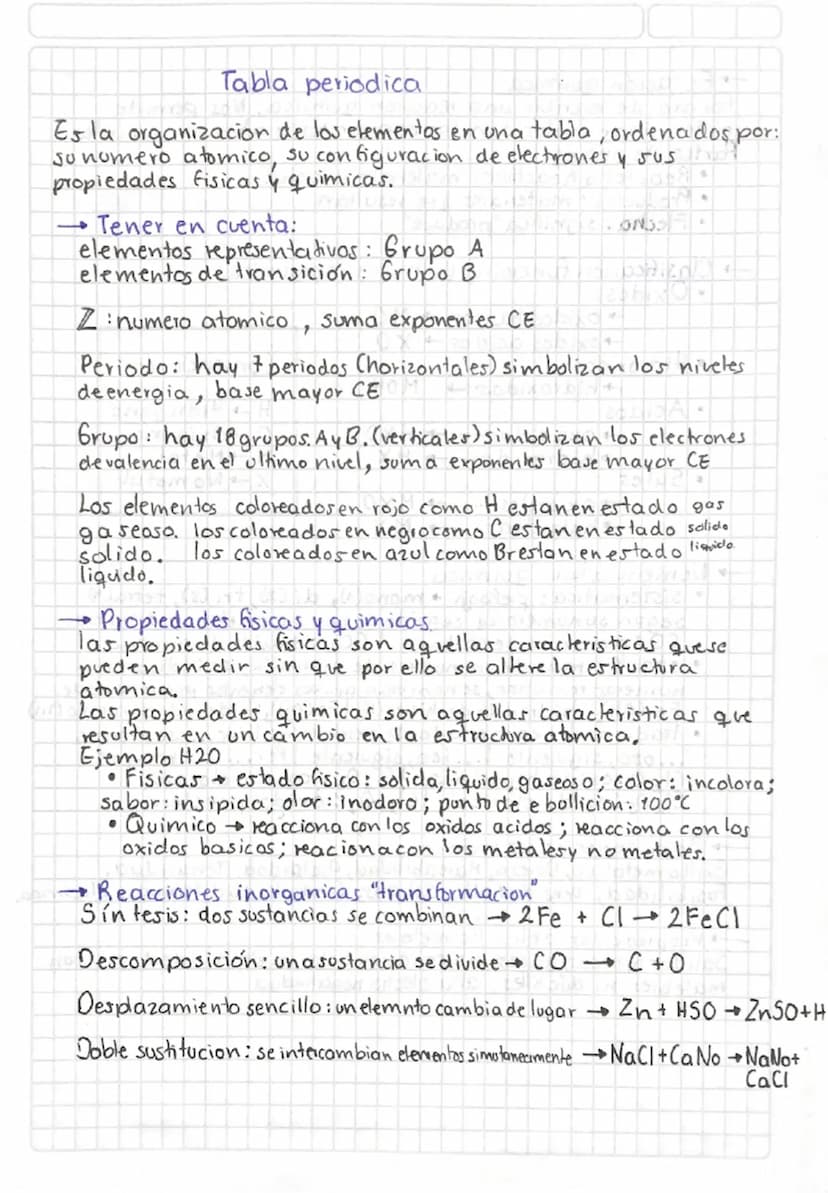 Tabla periodica
Es la organizacion de los elementos en una tabla, ordenados por:
su numero atomico, su configuracion de electrones y sus
propiedades fisicas y quimicas.
→ Tener en cuenta:
elementos representativos: Grupo A
elementos de transición: Grupo B
Z: numero atomico, suma exponentes CE
Periodo: hay 7 periodos (horizontales) simbolizan los niveles
de energia, base mayor CE
Grupo: hay 18 grupos. A y B. (verticales) simbolizan los electrones
de valencia en el ultimo nivel, suma exponentes base mayor CE
Los elementos coloreados en rojo como H estan en estado gas
gaseoso. los coloreados en negro como C estan en estado solido
solido. los coloreados en azul como Br estan en estado liquido
liquido.
→ Propiedades fisicas y quimicas.
las propiedades fisicas son aquellas caracteristicas que se
pueden medir sin que por ello se altere la estructura
atomica.
Las propiedades quimicas son aquellas caracteristicas que
resultan en un cambio en la estructura atomica.
Ejemplo H2O
• Fisicas → estado fisico: solida, liquido, gaseoso; color: incolora;
sabor: insipida; olor: inodoro; punto de ebollicion: 100°C
• Quimico → reacciona con los oxidos acidos; reacciona con los
oxidos basicos; reaciona con los metales y no metales.
→ Reacciones inorganicas "transformacion"
Síntesis: dos sustancias se combinan → 2Fe + Cl → 2FeCl
Descomposición: una sustancia se divide → CO → C + O
Desplazamiento sencillo: un elemnto cambia de lugar → Zn + HSO → ZnSO + H
Doble sustitucion: se intercambian elementos simultaneamente → NaCl + CaNo → NaNo +
CaCl